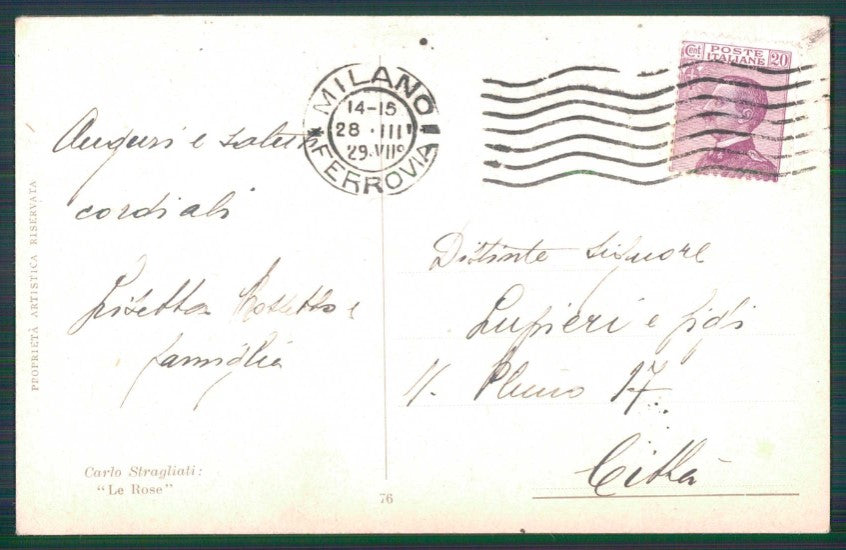 Cent POSTE ITALIANE 20
MILANO
14-15
28 · III
29·VIIº
FERROVIA
Auguri e saluti
cordiali
Lisetta e
famiglia
Distinte Signore
Lupieri e figli
17
Città
PROPRIETÀ ARTISTICA RISERVATA
Carlo Stragliati:
"Le Rose"
76